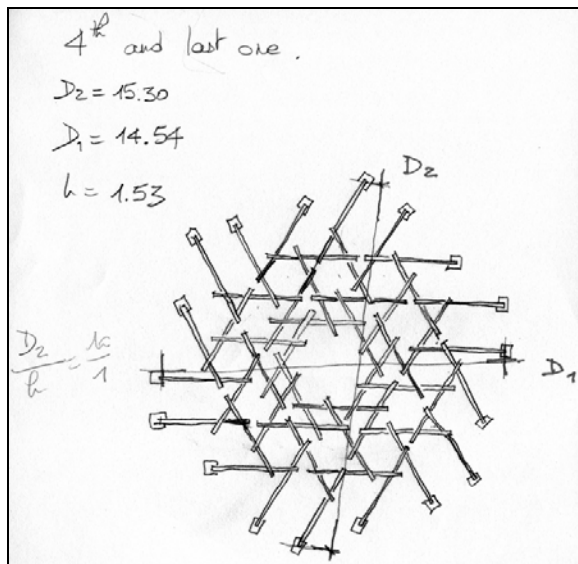 4th and last one.
D2 = 15.30
D1 = 14.54
h = 1.53
D2
D2/h =
D1